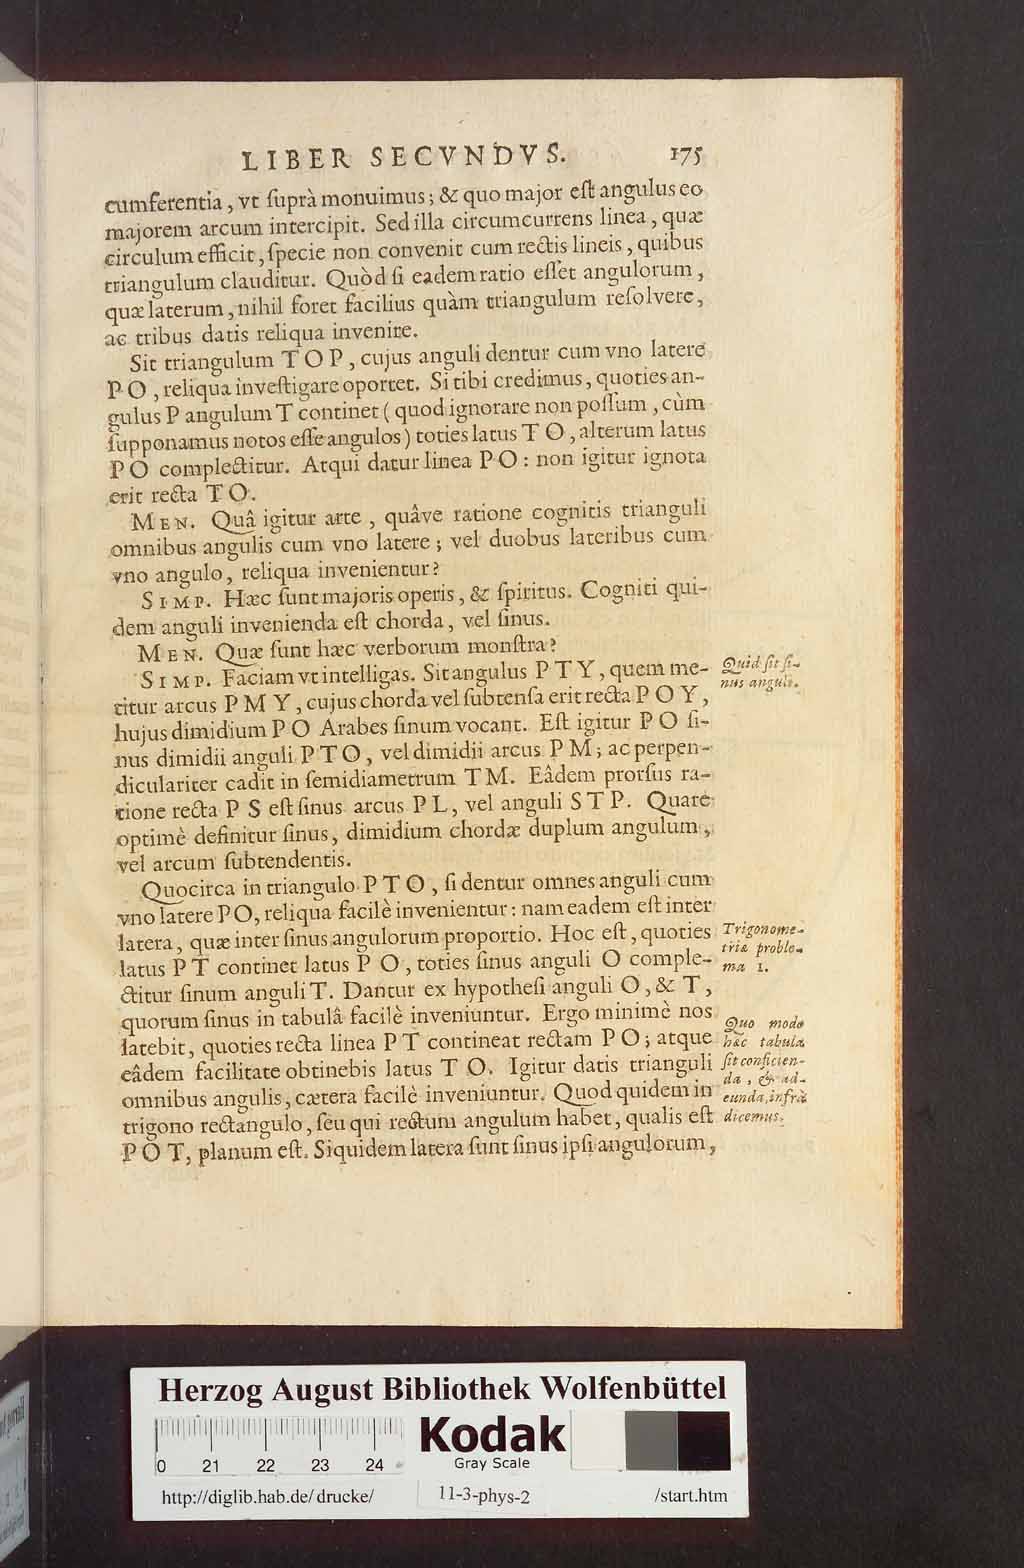 LIBER SECVNDVS. 175
cumferentia, vt ſuprà monuimus; & quo major eſt angulus eo
majorem arcum intercipit. Sed illa circumcurrens linea, quæ
circulum efficit, ſpecie non convenit cum rectis lineis, quibus
triangulum clauditur. Quòd ſi eadem ratio eſſet angulorum,
quæ laterum, nihil foret facilius quàm triangulum reſolvere,
ac tribus datis reliqua invenire.
Sit triangulum T O P, cujus anguli dentur cum vno latere
P O, reliqua inveſtigare oportet. Si tibi credimus, quoties an-
gulus P angulum T continet (quod ignorare non poſſum, cùm
ſupponamus notos eſſe angulos) toties latus T O, alterum latus
P O complectitur. Atqui datur linea P O: non igitur ignota
erit recta T O.
MEN. Quâ igitur arte, quâve ratione cognitis trianguli
omnibus angulis cum vno latere; vel duobus lateribus cum
vno angulo, reliqua invenientur?
SIMP. Hæc ſunt majoris operis, & ſpiritus. Cogniti qui-
dem anguli invenienda eſt chorda, vel ſinus.
MEN. Quæ ſunt hæc verborum monſtra?
SIMP. Faciam vt intelligas. Sit angulus P T Y, quem me-
titur arcus P M Y, cujus chorda vel ſubtenſa erit recta P O Y,
hujus dimidium P O Arabes ſinum vocant. Eſt igitur P O ſi-
nus dimidii anguli P T O, vel dimidii arcus P M; ac perpen-
diculariter cadit in ſemidiametrum T M. Eâdem prorſus ra-
tione recta P S eſt ſinus arcus P L, vel anguli S T P. Quare
optimè definitur ſinus, dimidium chordæ duplum angulum,
vel arcum ſubtendentis.
Quocirca in triangulo P T O, ſi dentur omnes anguli cum
vno latere P O, reliqua facilè invenientur: nam eadem eſt inter
latera, quæ inter ſinus angulorum proportio. Hoc eſt, quoties
latus P T continet latus P O, toties ſinus anguli O comple-
ctitur ſinum anguli T. Dantur ex hypotheſi anguli O, & T,
quorum ſinus in tabulâ facilè inveniuntur. Ergo minimè nos
latebit, quoties recta linea P T contineat rectam P O; atque
eâdem facilitate obtinebis latus T O. Igitur datis trianguli
omnibus angulis, cætera facilè inveniuntur. Quod quidem in
trigono rectangulo, ſeu qui rectum angulum habet, qualis eſt
P O T, planum eſt. Siquidem latera ſunt ſinus ipſi angulorum,
Quid ſit ſi-
nus anguli.
Trigonome-
triæ proble-
ma 1.
Quo modo
hæc tabula
ſit conficien-
da, & ad-
eunda, infrà
dicemus.
Herzog August Bibliothek Wolfenbüttel
0 21 22 23 24
Kodak
Gray Scale
http://diglib.hab.de/drucke/ 11-3-phys-2 /start.htm